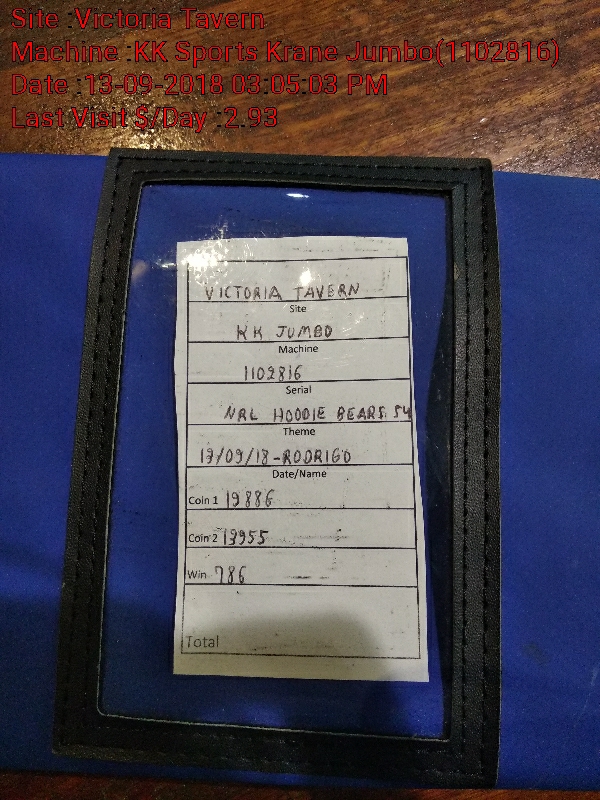 Site :Victoria Tavern
Machine :KK Sports Krane Jumbo(1102816)
Date :13-09-2018 03:05:03 PM
Last Visit $/Day :2.93
VICTORIA TAVERN
Site
KK JUMBO
Machine
1102816
Serial
NRL HOODIE BEARS S4
Theme
13/09/18-RODRIGO
Date/Name
Coin 1 19886
Coin 2 13955
Win 786
Total